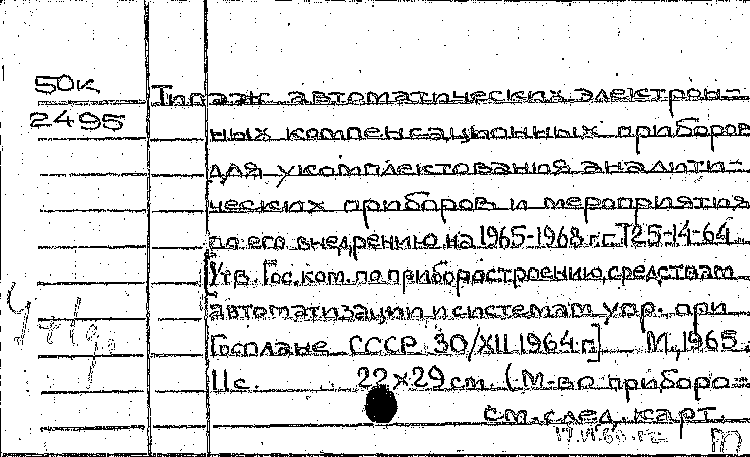 50к
2495
Типаж автоматических электрон-
ных компенсационных приборов
для укомплектования аналити-
ческих приборов и мероприятия
по его внедрению на 1965-1968 г.г. Т25-14-64
[Утв. Гос. ком. по приборостроению, средствам
автоматизации и системам упр. при
Госплане СССР 30/XII 1964 г.] М., 1965.
11с. 22×29 см. (М-во приборо-
см. след. карт.